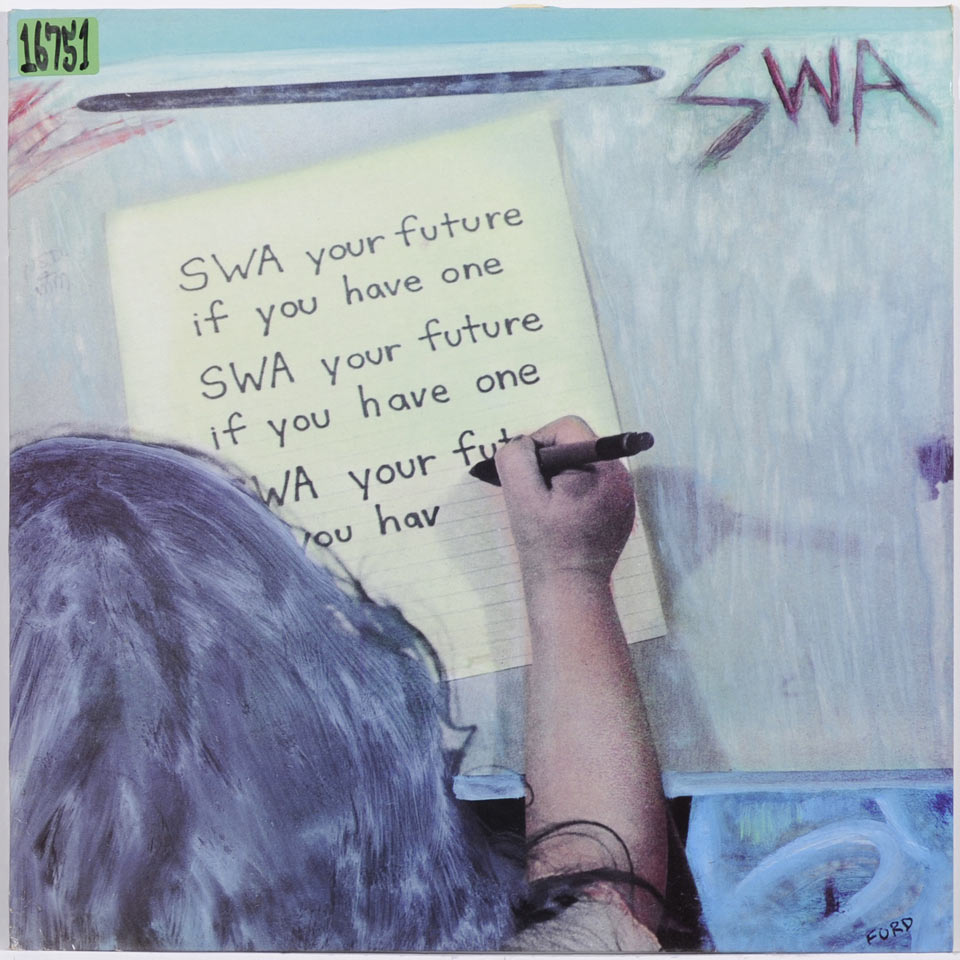 16751
SWA
SWA your future
if you have one
SWA your future
if you have one
WA your fut
you hav
FORD